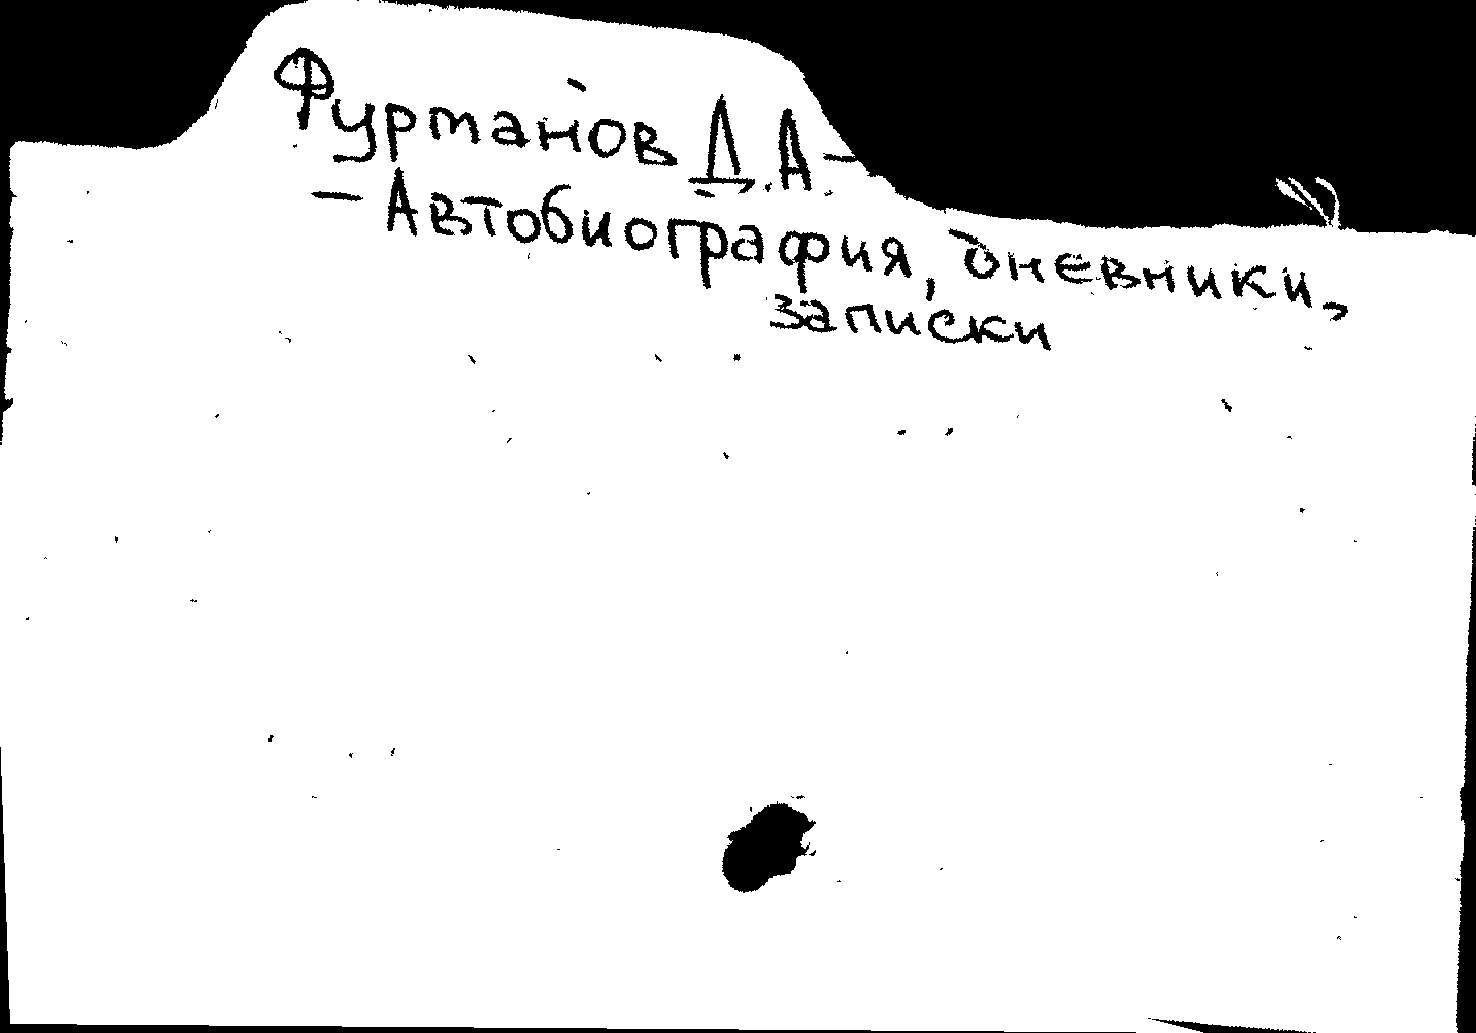 Фурманов Д.А.-
- Автобиография, дневники,
записки